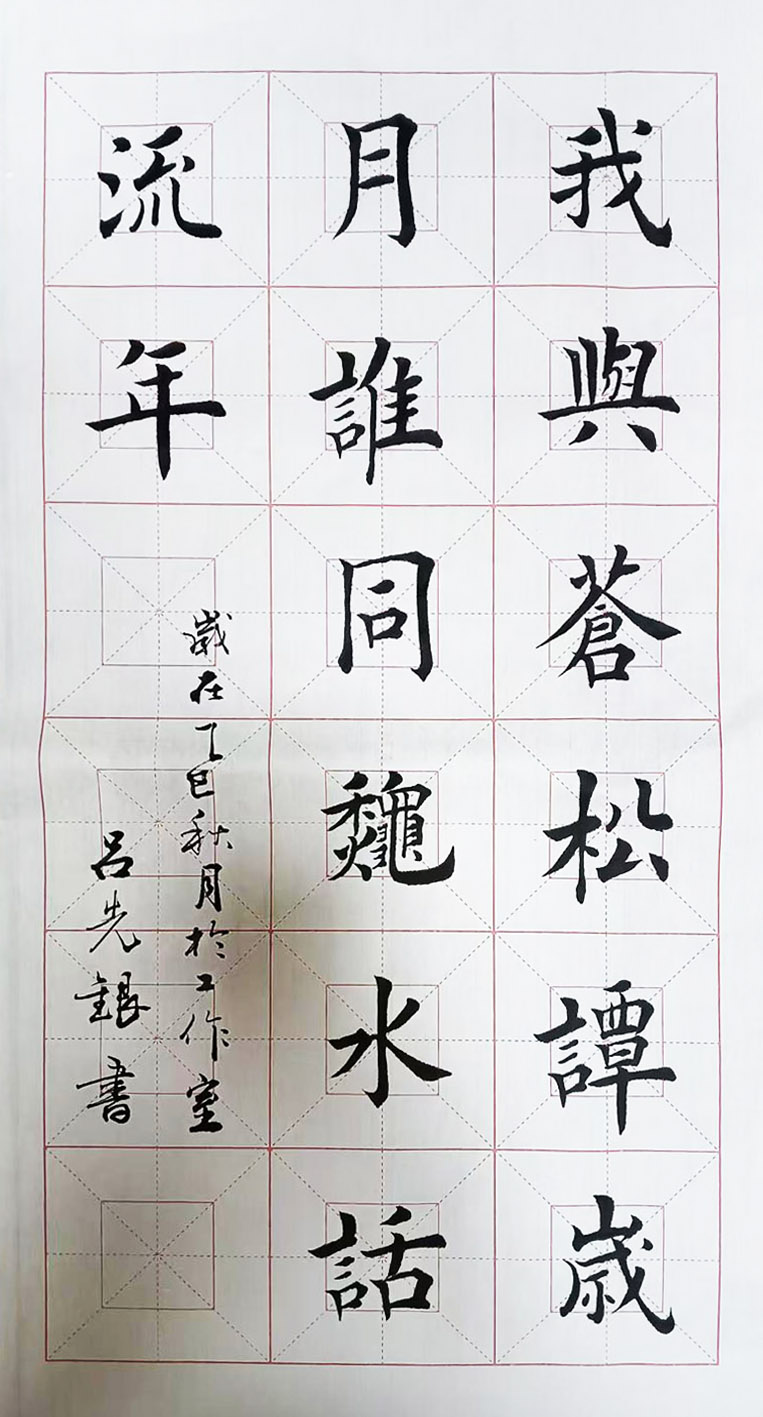 我與蒼松譚歲
月誰同龝水話
流年
歲在丁巳秋月於工作室
呂先銀書